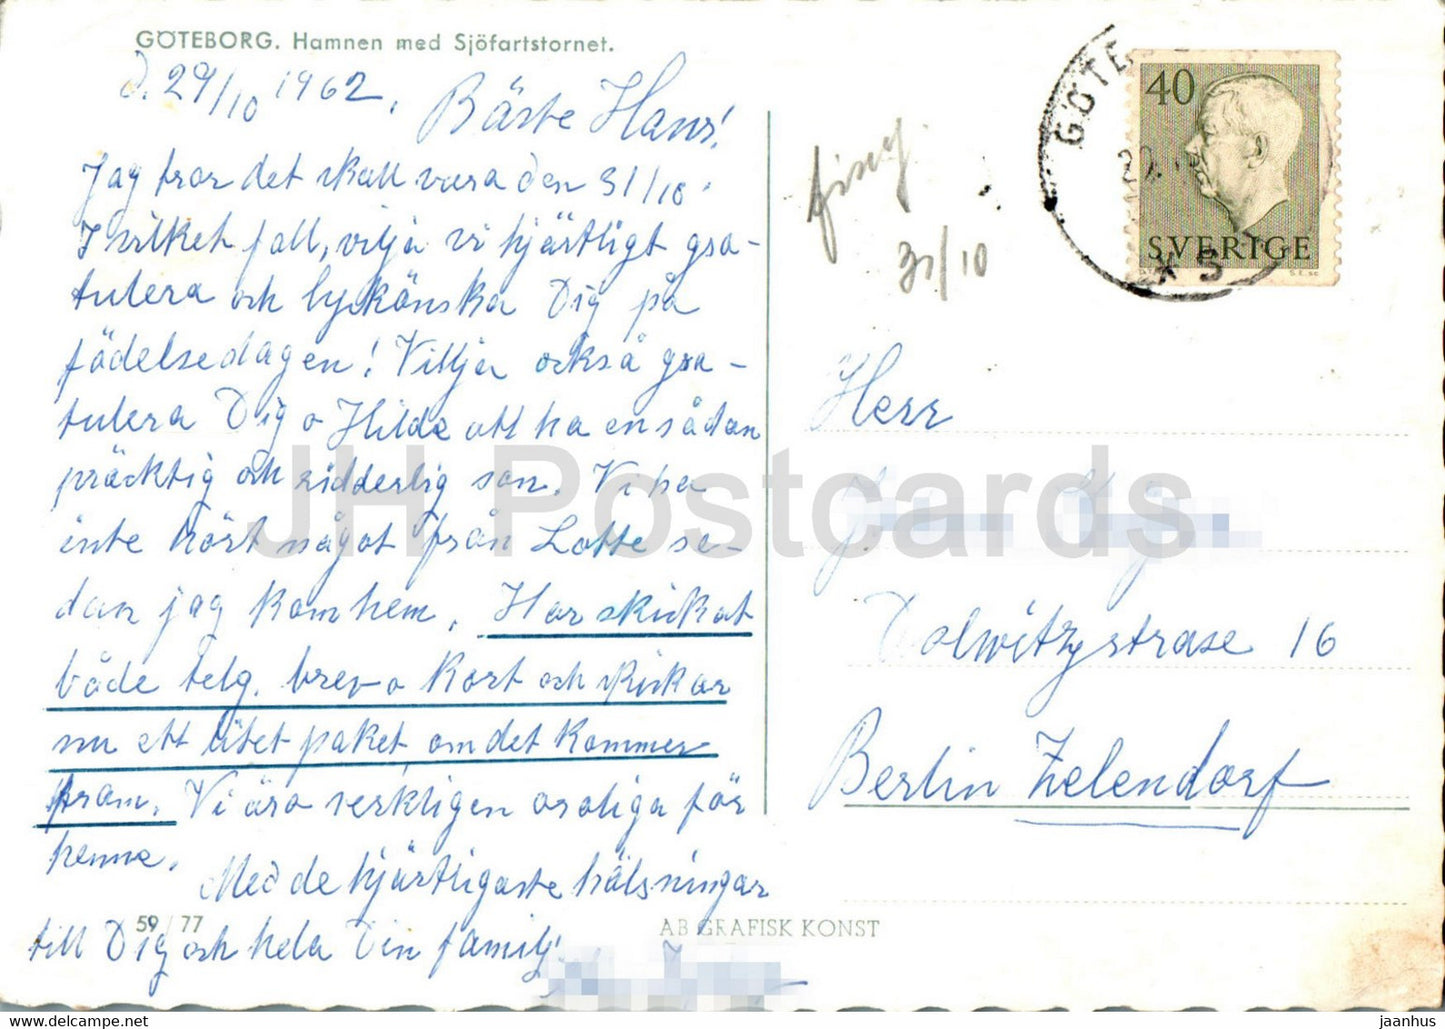 GÖTEBORG. Hamnen med Sjöfartstornet.
d. 29/10 1962.
Bäste Hans!
Jag tror det skall vara den 31/10.
I vilket fall, vilja vi hjärtligt gra-
tulera och lyckönska Dig på
födelsedagen! Vilja också gra-
tulera Dig o Hilde att ha en sådan
präcktig och ridderlig son. Vi ha
inte hört något från Lotte se-
dan jag kom hem. Har skickat
både telg. brev o kort och skickar
nu ett litet paket, om det kommer
fram. Vi äro verkligen oroliga för
henne.
Med de hjärtligaste hälsningar
till Dig och hela Din family.
59/77
AB GRAFISK KONST
31/10
GÖTE
40
SVERIGE
* 5
Herr
Dolwitzstrase 16
Berlin Zelendorf
JH Postcards
jaanhus
https://www.hippostcard.com/store/jaanhus